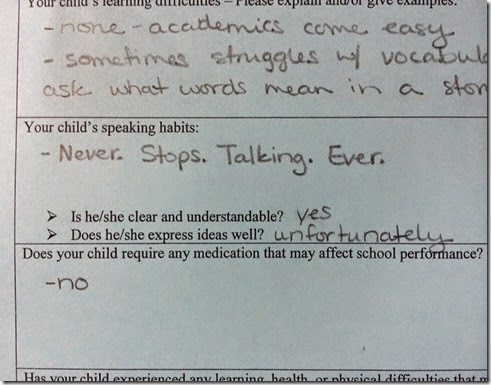 Your child's learning difficulties – Please explain and/or give examples:
- none - academics come easy
- sometimes struggles w/ vocabul
ask what words mean in a stor
Your child's speaking habits:
- Never. Stops. Talking. Ever.
➤ Is he/she clear and understandable? yes
➤ Does he/she express ideas well? unfortunately
Does your child require any medication that may affect school performance?
-no
Has your child experienced any learning, health, or physical difficulties that